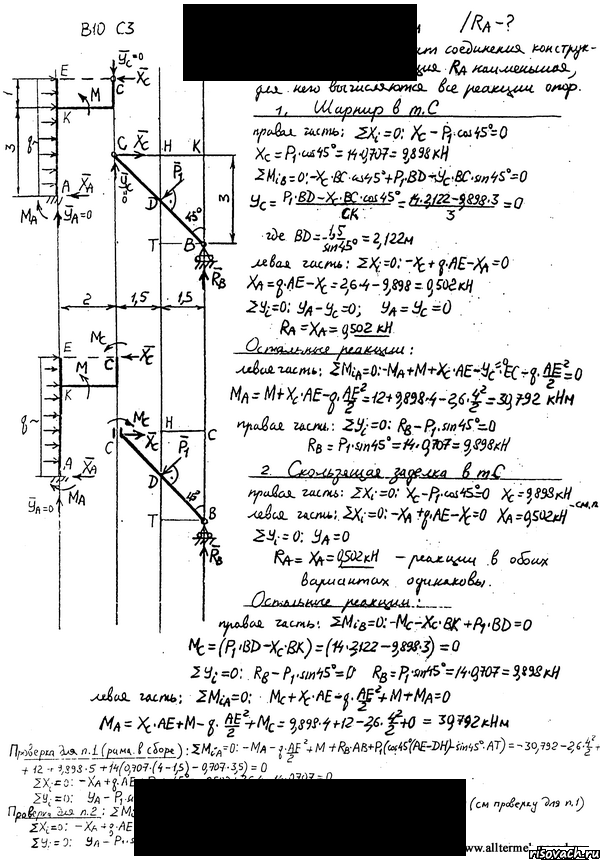 В10 С3
/RА-?
соединения конструк-
RА наименьшая,
для него вычисляются все реакции опор.
1. Шарнир в т.С
правая часть: ΣXi=0: XC-P1·cos45°=0
XC=P1·cos45°=14·0,707=9,898кН
ΣMiB=0:-XC·BC·cos45°+P1·BD-YC·BC·sin45°=0
YC=(P1·BD-XC·BC·cos45°)/CK=(14·2,122-9,898·3)/3=0
где BD=1,5/sin45°=2,122м
левая часть: ΣXi=0:-XC+q·AE-XA=0
XA=q·AE-XC=2,6·4-9,898=0,502кН
ΣYi=0: YA-YC=0; YA=YC=0
RA=XA=0,502кН
Остальные реакции:
левая часть: ΣMiA=0:-MA+M+XC·AE-YC·EC-q·AE²/2=0
MA=M+XC·AE-q·AE²/2=12+9,898·4-2,6·4²/2=30,792 кНм
правая часть: ΣYi=0: RB-P1·sin45°=0
RB=P1·sin45°=14·0,707=9,898кН
2. Скользящая заделка в т.С
правая часть: ΣXi=0: XC-P1·cos45°=0 XC=9,898кН
левая часть: ΣXi=0: -XA+q·AE-XC=0 XA=0,502кН -см.п
ΣYi=0: YA=0
RA=XA=0,502кН - реакции в обоих
вариантах одинаковы.
Остальные реакции:
правая часть: ΣMiB=0:-MC-XC·BK+P1·BD=0
MC=(P1·BD-XC·BK)=(14·2,122-9,898·3)=0
ΣYi=0: RB-P1·sin45°=0 RB=P1·sin45°=14·0,707=9,898кН
левая часть: ΣMiA=0: MC+XC·AE-q·AE²/2+M+MA=0
MA=XC·AE+M-q·AE²/2+MC=9,898·4+12-2,6·4²/2+0=30,792 кНм
Проверка для п.1 (рама в сборе): ΣMiA=0: -MA-q·AE²/2+M+RB·AB+P1(cos45°(AE-DH)-sin45°·AT)=-30,792-2,6·4²/2+
+12+9,898·5+14(0,707·(4-1,5)-0,707·3,5)=0
ΣXi=0: -XA+q·AE
ΣYi=0: YA-P1·si
Проверка для п.2: ΣMi (см проверку для п.1)
ΣXi=0: -XA+q·AE
ΣYi=0: YA-P1·si
www.allterme
risovach.ru